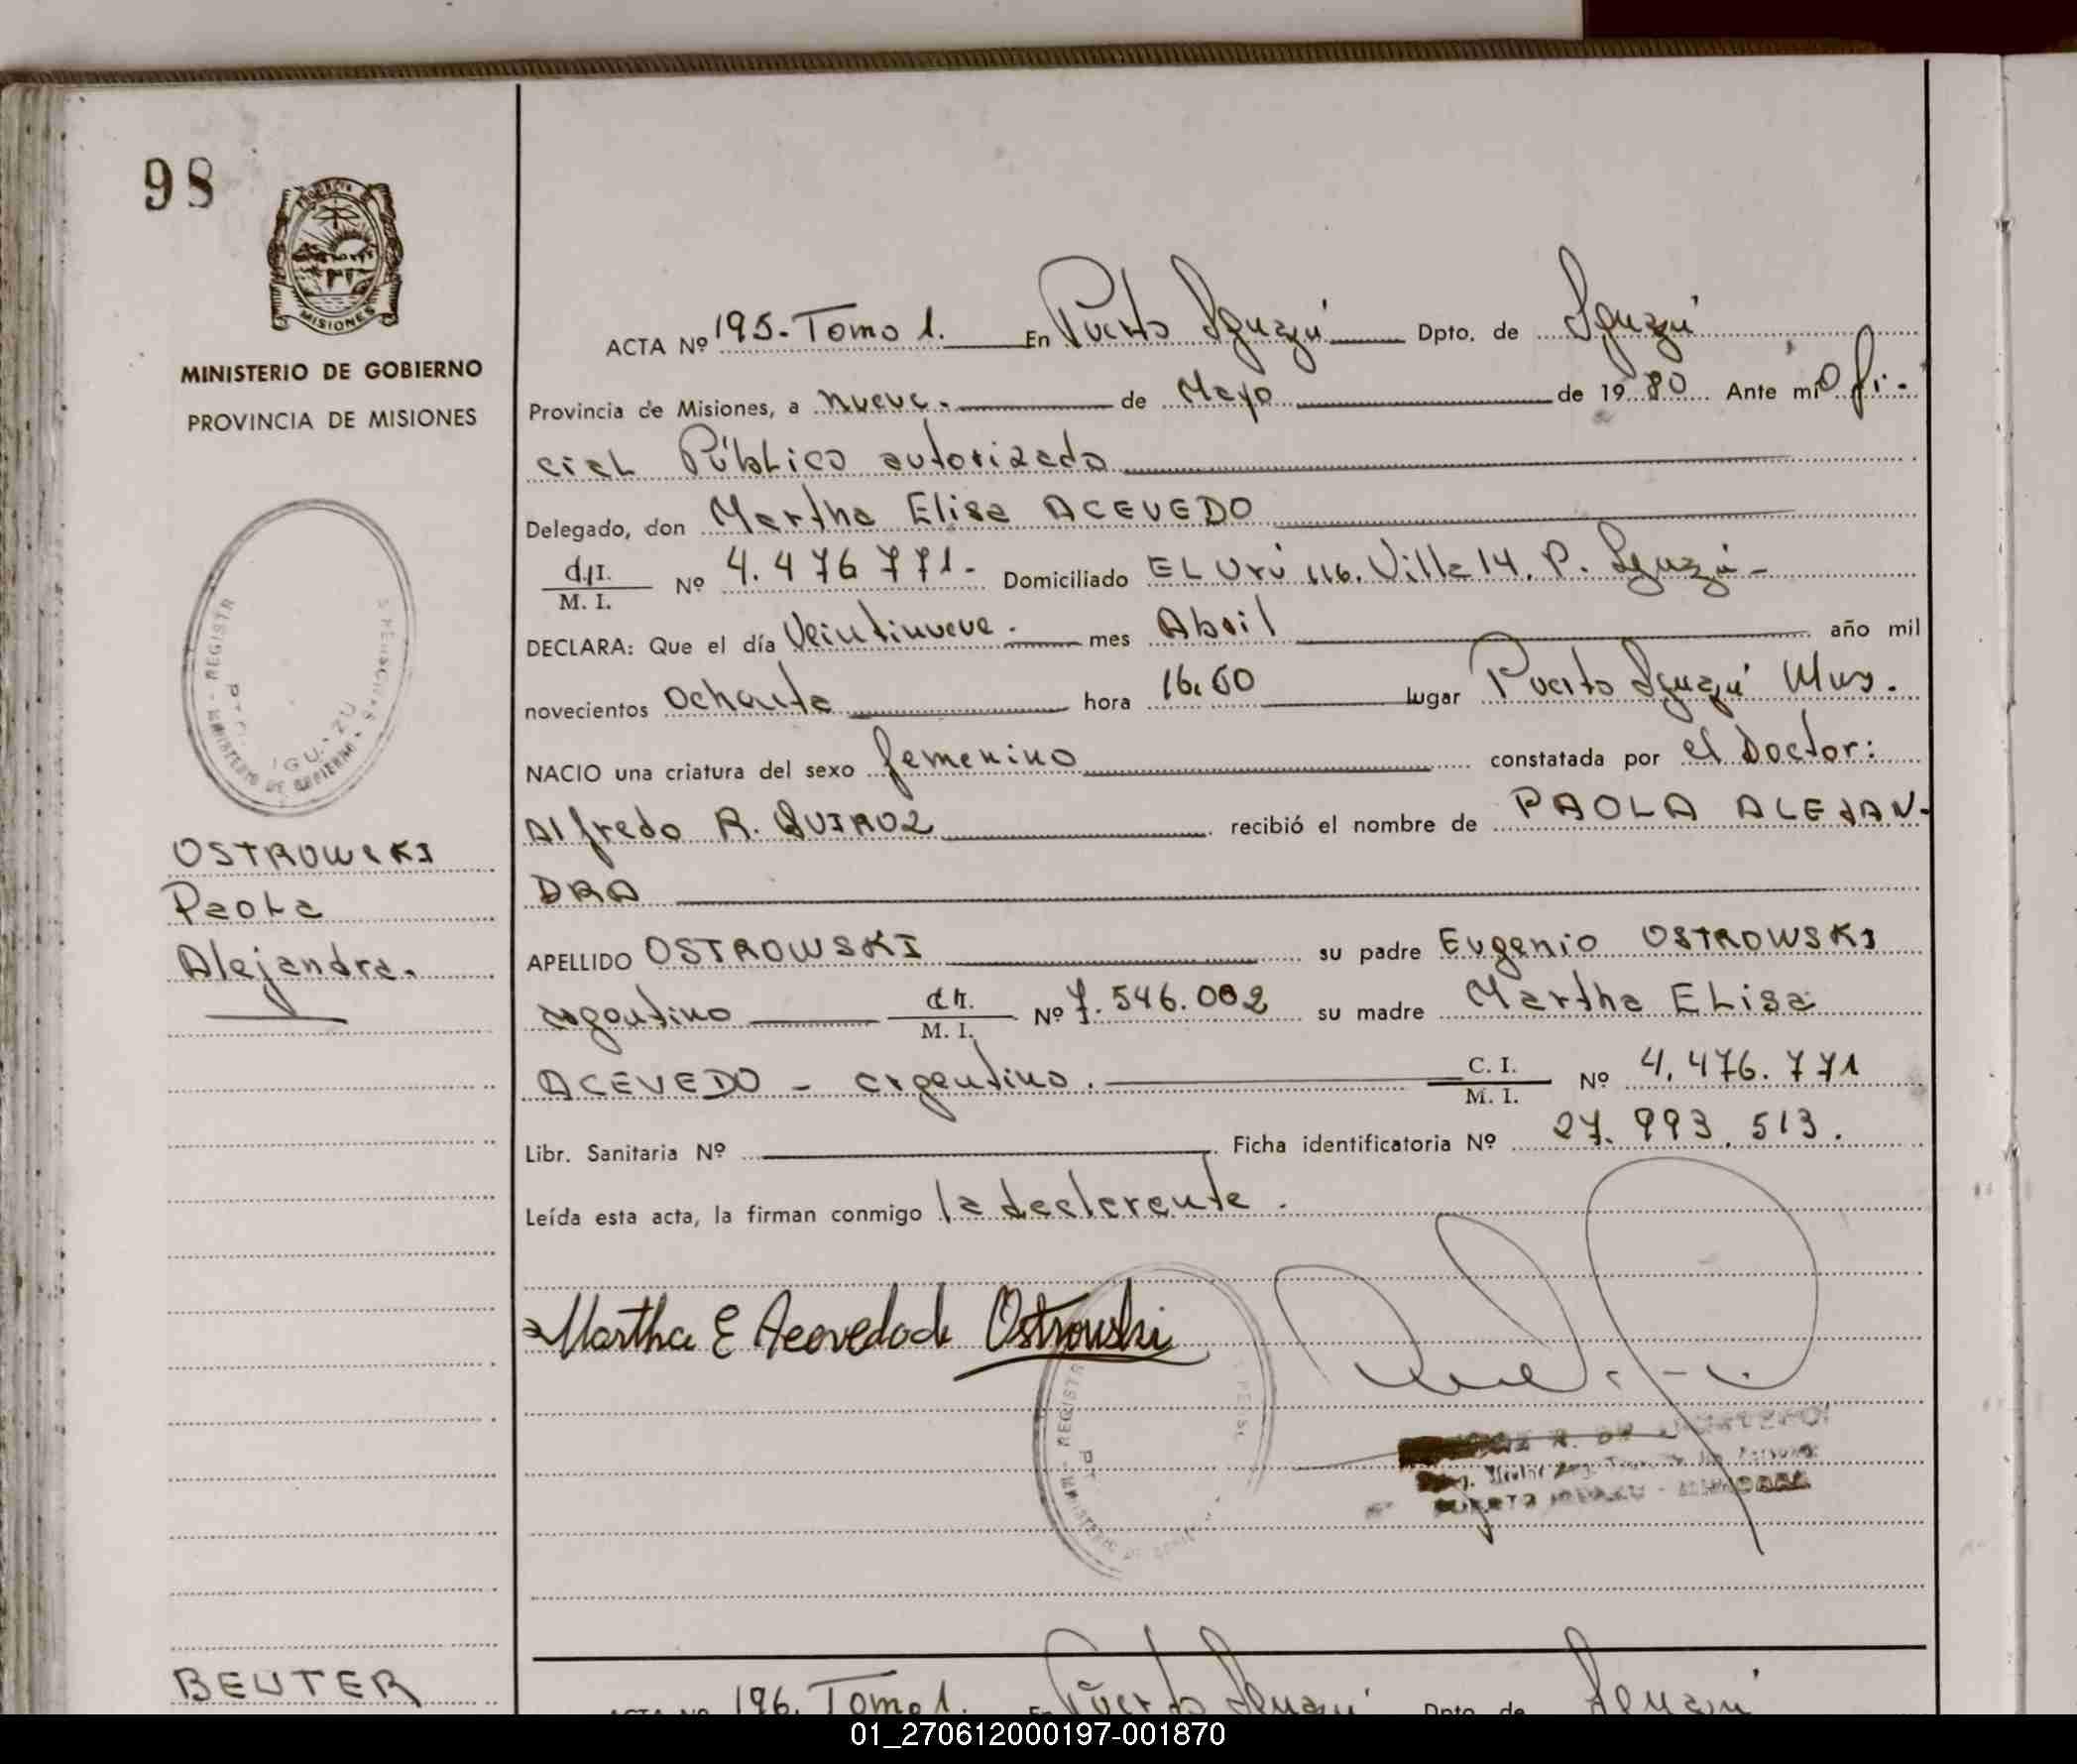 98
MISIONES
MINISTERIO DE GOBIERNO
PROVINCIA DE MISIONES
OSTROWSKI
Paola
Alejandra.
ACTA Nº 195-Tomo 1. En Puerto Iguazú Dpto. de Iguazú
Provincia de Misiones, a nueve. de Mayo de 1980 Ante mi Ofi-
cial Público autorizado
Delegado, don Martha Elisa ACEVEDO
M. I. Nº 4.476 771- Domiciliado EL Urú 116. Villa 14. P. Iguazú-
DECLARA: Que el día Veintinueve. mes Abril año mil
novecientos ochenta hora lugar Puerto Iguazú Mnes.
NACIO una criatura del sexo femenino constatada por el Doctor:
Alfredo R. QUIROZ recibió el nombre de PAOLA ALEJAN-
DRA
APELLIDO OSTROWSKI su padre Eugenio OSTROWSKI
argentino M. I. Nº 7.546.002 su madre Martha Elisa
ACEVEDO - argentina. C. I. M. I. Nº 4.476.771
Libr. Sanitaria Nº Ficha identificatoria Nº 27.993.513.
Leída esta acta, la firman conmigo la declarente.
Martha E Acevedo de Ostrowski
BEUTER
ACTA Nº 196. Tomo 1. En Puerto Iguazú Dpto. de Iguazú
01_270612000197-001870